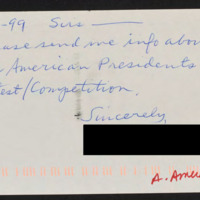 -99 Sirs
ease send me info abou
American Presidents
est/Competition.
Sincerely,
A. Ameri